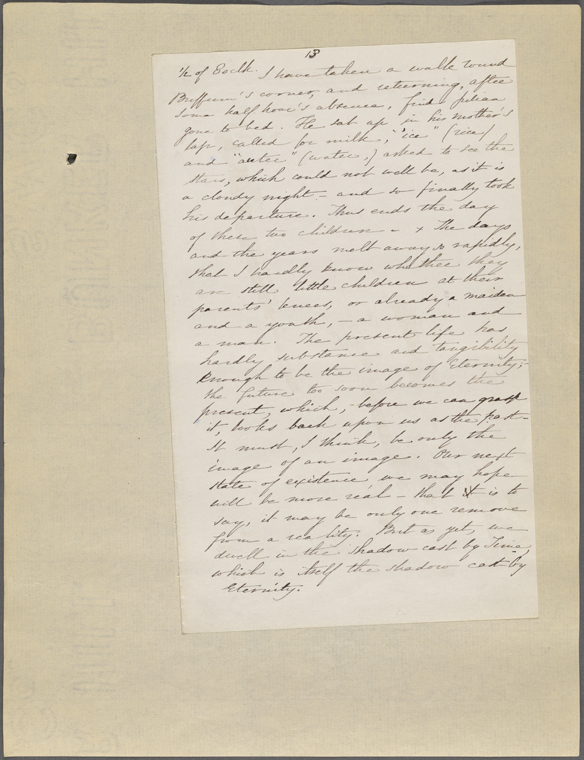 13
½ of 8 o'clk. I have taken a walk round
Buffum's corner, and returning, after
some half hour's absence, find Julian
gone to bed. He sat up in his mother's
lap, called for milk, "ice" (rice)
and "auter" (water,) asked to see the
stars, which could not well be, as it is
a cloudy night - and so finally took
his departure. Thus ends the day
of these two children - + The days
and the years melt away so rapidly,
that I hardly know whether they
are still little children at their
parents' knees, or already a maiden
and a youth, - a woman and
a man. The present life has
hardly substance and tangibility
enough to be the image of eternity;
the future too soon becomes the
present, which, - before we can grasp
it, looks back upon us as the past -
It must, I think, be only the
image of an image. Our next
state of existence, we may hope
will be more real - that it is to
say, it may be only one remove
from a reality. But as yet, we
dwell in the shadow cast by Time,
which is itself the shadow cast by
Eternity.